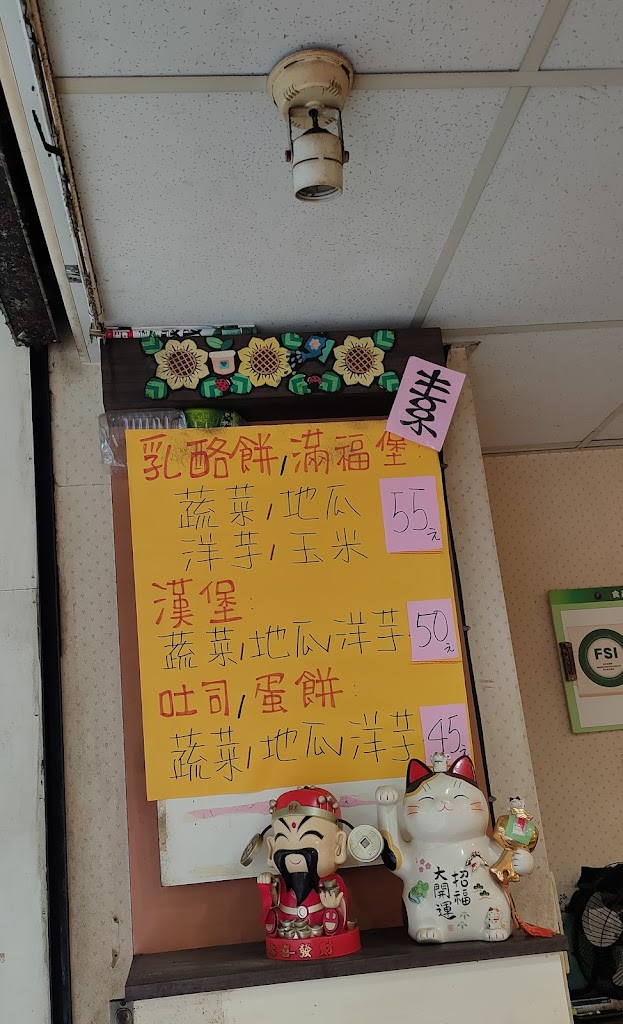 素
乳酪餅/滿福堡:
蔬菜/地瓜
洋芋/玉米
55元
漢堡:
蔬菜/地瓜/洋芋
50元
吐司/蛋餅:
蔬菜/地瓜/洋芋
45元
FSI
招福
大開運